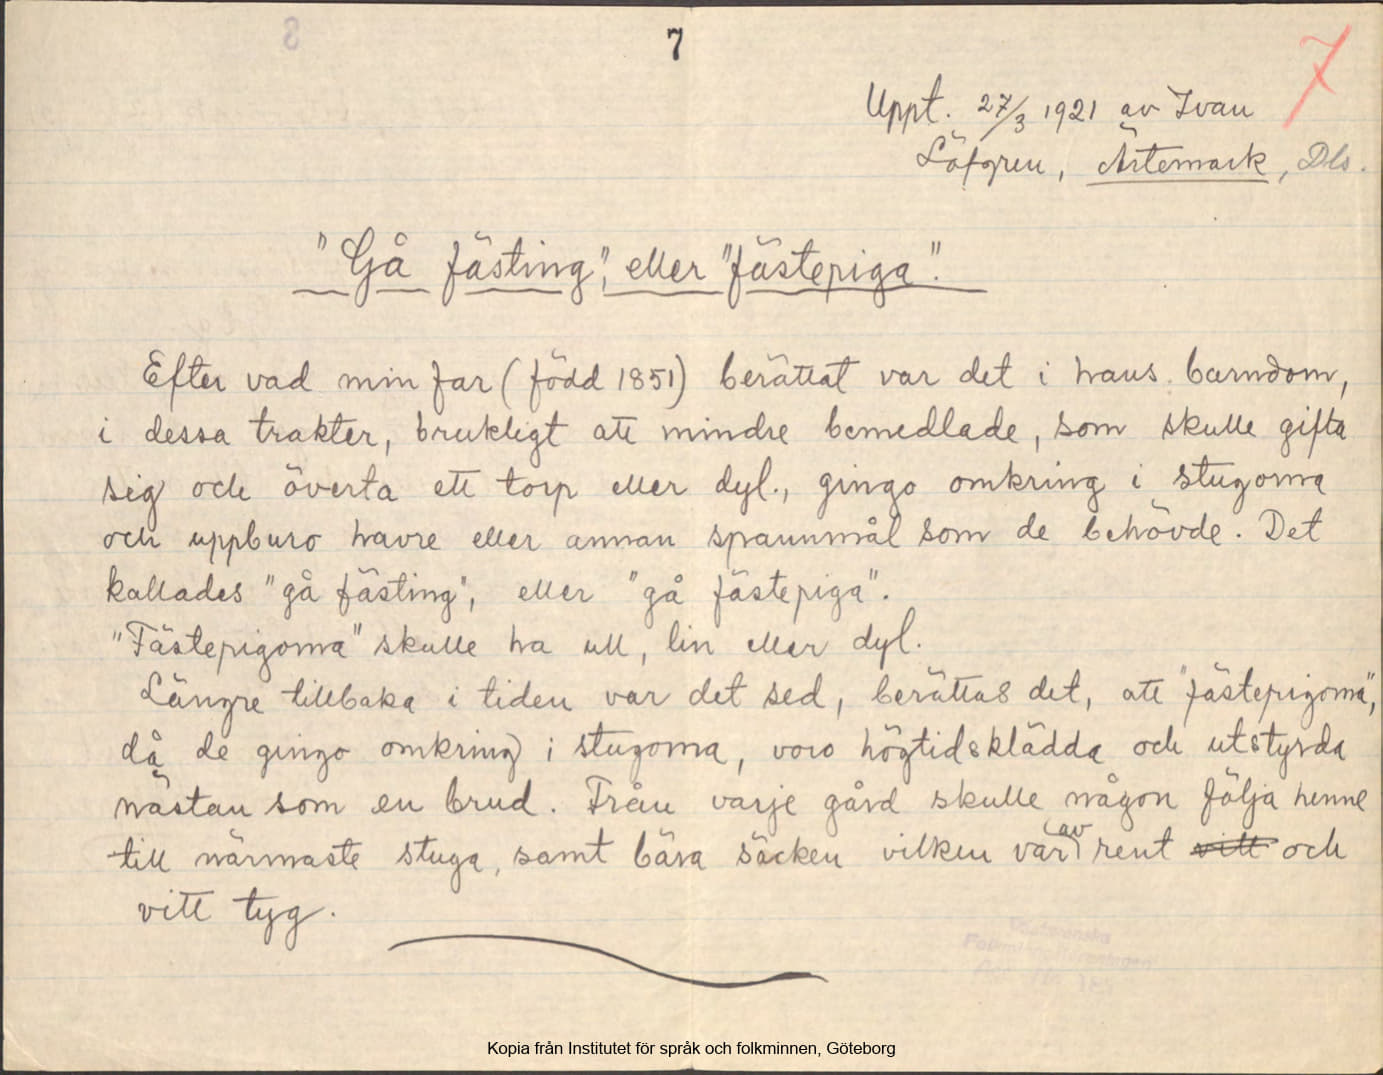 7
7
Uppt. 27/3 1921 av Ivan
Löfgren, Ärtemark, Dls.
"Gå fästing", eller "fästepiga".
Efter vad min far (född 1851) berättat var det i hans barndom,
i dessa trakter, brukligt att mindre bemedlade, som skulle gifta
sig och överta ett torp eller dyl., gingo omkring i stugorna
och uppburo havre eller annan spannmål som de behövde. Det
kallades "gå fästing", eller "gå fästepiga".
"Fästepigorna" skulle ha ull, lin eller dyl.
Längre tillbaka i tiden var det sed, berättas det, att "fästepigorna",
då de gingo omkring i stugorna, voro högtidsklädda och utstyrda
nästan som en brud. Från varje gård skulle någon följa henne
till närmaste stuga, samt bära säcken vilken var av rent vitt och
vitt tyg.
Kopia från Institutet för språk och folkminnen, Göteborg